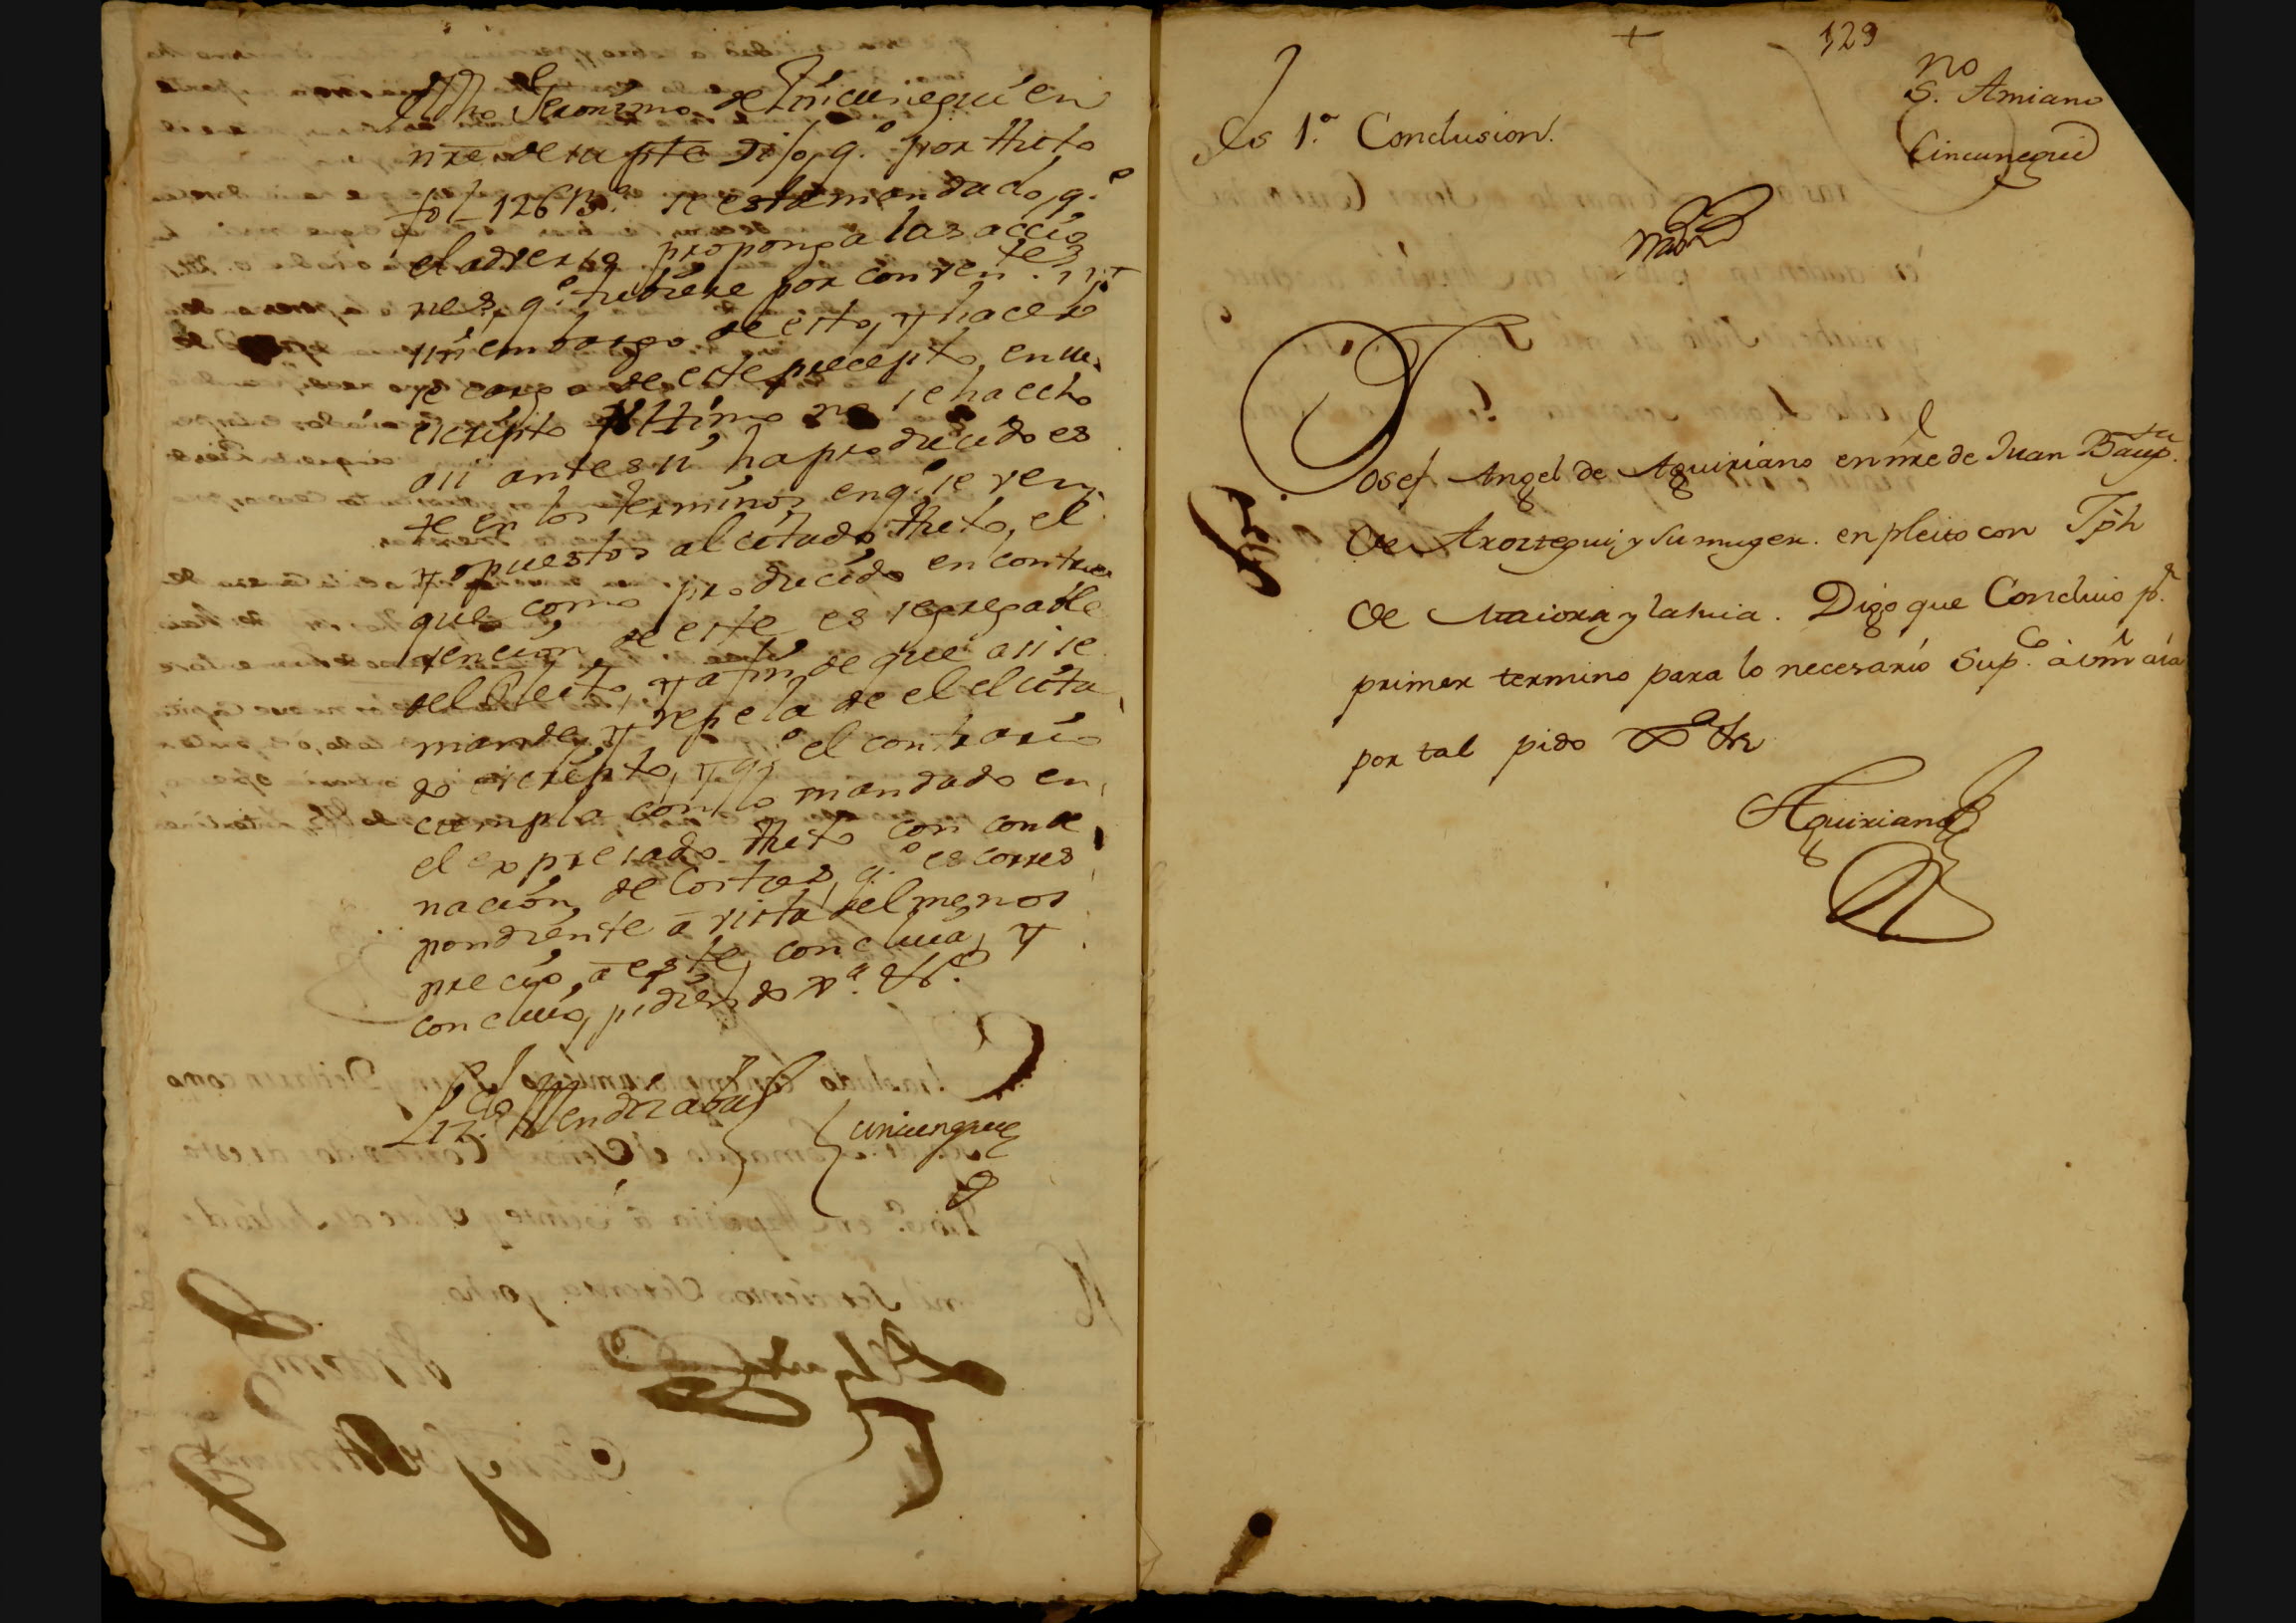 dho Geronimo de Cincunegui en
nre de su pte Dijo, q.e por Aucto
fol. 126 B.ta se esta mandado, q.e
el adverso proponga las accio
nes, q.e tubiere por conven.tes, y
sin embargo de esto, y hacer
se cargo de este precepto, en su
escripto ultimo no se ha echo
asi antes si ha producido es
te en los terminos, en q.e se ven,
y opuestos al citado Aucto, el
que como producido en contra
vencion de este es segregable
del Pleito, y a fin de que asi se
mande, y repela de el el cita
do escripto, y q.e el contrario
cumpla con lo mandado en
el expresado Aucto con conde
nacion, de Costas, q.e es corres
pondiente â vista del menos
precio, â este, concluia, y
concluio, pidiendo x.a &c.
Liz.do Mendizabal
Cincunegui
+
129
Es 1.a Conclusion.
no
S. Amiano
Cincunegui
Josef Angel de Aguiriano en nre de Juan Baup.ta
de Aroztegui y su muger. en pleito con Jph
de Maiora y la suia. Digo que Concluio p.r
primer termino para lo necesario Sup.co â vm âia
por tal pido &c
Aguiriano